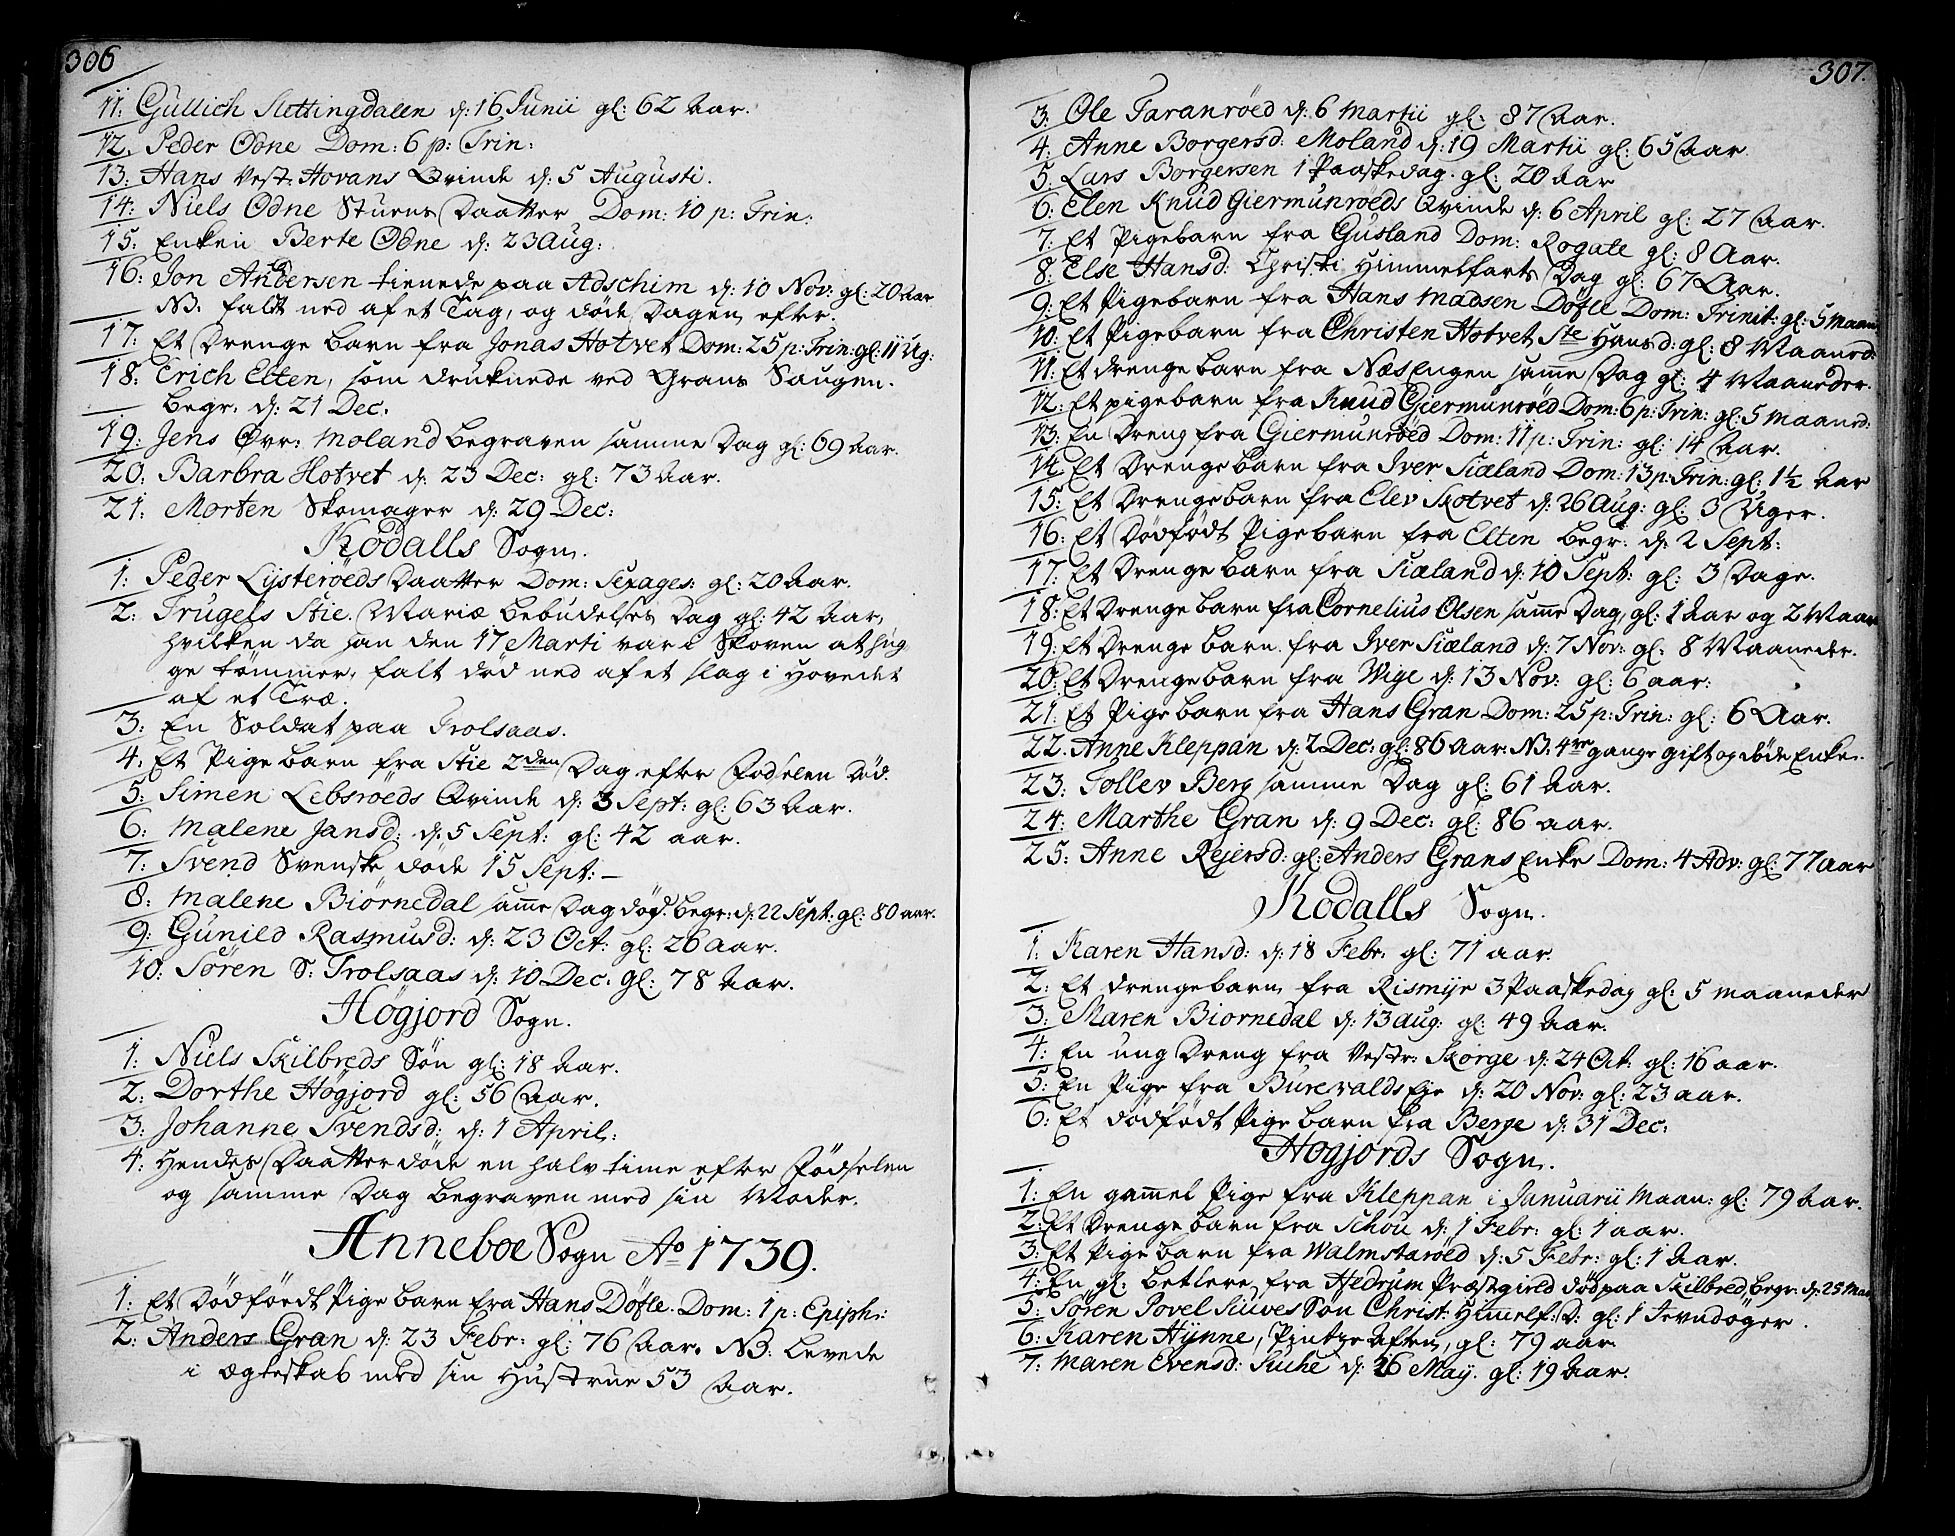 306
11: Gullich Slettingdalen d: 16 Junii gl: 62 Aar.
12. Peder Odne Dom: 6 p: Trin:
13: Hans Vest: Hovans Qvinde d: 5 Augusti.
14: Niels Odne Stuens Daatter Dom: 10 p: Trin:
15: Enken Berte Odne d: 23 Aug:
16: Jon Andersen tienede paa Adschim d: 10 Nov: gl: 20 Aar
NB. faldt ned af et Tag, og døde Dagen efter.
17: Et Drenge Barn fra Jonas Hotvet Dom: 25 p: Trin: gl: 11 Ug:
18: Erich Elten, som druknede ved Grans Saugen.
begr: d: 21 Dec.
19: Jens Øvr: Moland begraven samme Dag gl: 69 Aar.
20: Barbra Hotvet d: 23 Dec: gl: 73 Aar.
21: Morten Skomager d: 29 Dec:
Kodalls Sogn.
1: Peder Lysterøeds Daatter Dom: Sexages: gl: 20 Aar.
2: Trugels Stie. Mariæ bebudelses Dag gl: 42 Aar,
hvilken da han den 17 Marti var i Skoven at hug
ge tømmer, falt død ned af et slag i Hovedet
af et Træ.
3: En Soldat paa Trolsaas.
4: Et Pige barn fra Stie 2den Dag efter Fødselen død.
5: Simen Lebsrøeds Qvinde d: 3 Sept: gl: 63 Aar.
6: Malene Jansd: d: 5 Sept: gl: 42 aar.
7: Svend Svenske døde 15 Sept:
8: Malene Biørnedal samme Dag død. begr: d: 22 Sept: gl: 80 aar.
9: Gunild Rasmusd: d: 23 Oct: gl: 26 aar.
10: Søren S: Trolsaas d: 10 Dec: gl: 78 Aar.
Høgjord Sogn.
1: Niels Skilbreds Søn gl: 18 Aar.
2: Dorthe Høgjord gl: 56 Aar.
3: Johanne Svendsd: d: 1 April:
4: Hendes Daatter døde en halv time efter Fødselen
og samme Dag begraven med sin Moder.
Anneboe Sogn Ao 1739.
1: Et Dødføedt Pige barn fra Hans Døfle. Dom: 1 p: Epiph:
2: Anders Gran d: 23 Febr: gl: 76 Aar. NB. Levede
i ægteskab med sin Hustrue 53 Aar.
307.
3: Ole Taranrøed d: 6 Martii gl: 87 Aar.
4: Anne Borgersd: Moland d: 19 Martii gl: 65 Aar.
5: Lars Borgersen 1 Paaskedag. gl: 20 Aar
6: Elen Knud Giermunrøeds Qvinde d: 6 April gl: 27 Aar.
7: Et Pigebarn fra Gusland Dom: Rogate gl: 8 Aar.
8: Else Hansd: Christi Himmelfarts Dag gl: 67 Aar.
9: Et Pigebarn fra Hans Madsen Døfle Dom: Trinit: gl: 5 Maan
10: Et Pigebarn fra Christen Hotvet Ste Hans d: gl: 8 Maaned:
11: Et drenge barn fra Næsengen samme Dag gl: 4 Maaneder.
12: Et pigebarn fra Knud Giermunrøed Dom: 6 p: Trin: gl: 5 Maaned:
13: En Dreng fra Giermunrøed Dom: 11 p: Trin: gl: 14 Aar.
14: Et Drenge barn fra Iver Siæland Dom: 13 p: Trin: gl: 1½ Aar
15: Et Drenge barn fra Elev Skotvet d: 26 Aug: gl: 3 Uger.
16: Et Dødfødt Pigebarn fra Elten begr: d: 2 Sept:
17: Et Drenge barn fra Siæland d: 10 Sept: gl: 3 Dage.
18: Et Drenge barn fra Cornelius Olsen samme Dag, gl: 1 Aar og 2 Maan
19: Et Drenge barn fra Iver Siæland d: 7 Nov: gl: 8 Maaneder.
20: Et Drenge barn fra Vige d: 13 Nov: gl: 6 aar:
21: Et Pige barn fra Hans Gran Dom: 25 p: Trin: gl: 6 Aar.
22. Anne Kleppan d: 2 Dec: gl: 86 Aar. NB. 4re gange gift og døde Enke.
23: Tollev Berg samme Dag gl: 61 Aar.
24: Marthe Gran d: 9 Dec: gl: 86 aar.
25: Anne Rejersd: gl: Anders Grans Enke Dom: 4 Adv: gl: 77 aar
Kodalls Sogn.
1: Karen Hansd: d: 18 Febr: gl: 71 aar.
2: Et drengebarn fra Rismyr 3 Paaskedag gl: 5 maaneder
3: Maren Biornedal d: 13 aug: gl: 49 Aar.
4: En ung Dreng fra Vestr: Skorge d: 24 Oct: gl: 16 aar.
5: En Pige fra Burevalds Eje d: 20 Nov: gl: 23 aar.
6: Et dødfødt Pige barn fra Berge d: 31 Dec:
Høgjords Sogn.
1: En gammel Pige fra Kleppan i Januarii Maan: gl: 79 Aar.
2: Et Drenge barn fra Schou d: 1 Febr: gl: 1 aar.
3: Et Pige barn fra Walmstarøed d: 5 Febr: gl: 1 Aar.
4: En gl: betlere fra Hedrum Præstgield død paa Skilbred, begr: d: 25 Mar
5: Søren Povel Siuves Søn Christ: Himmelf: D: gl: 1 Jevndøger.
6: Karen Hynne, Pintze Aften, gl: 79 aar
7: Maren Evensd: Siuhe d: 26 May. gl: 19 Aar.